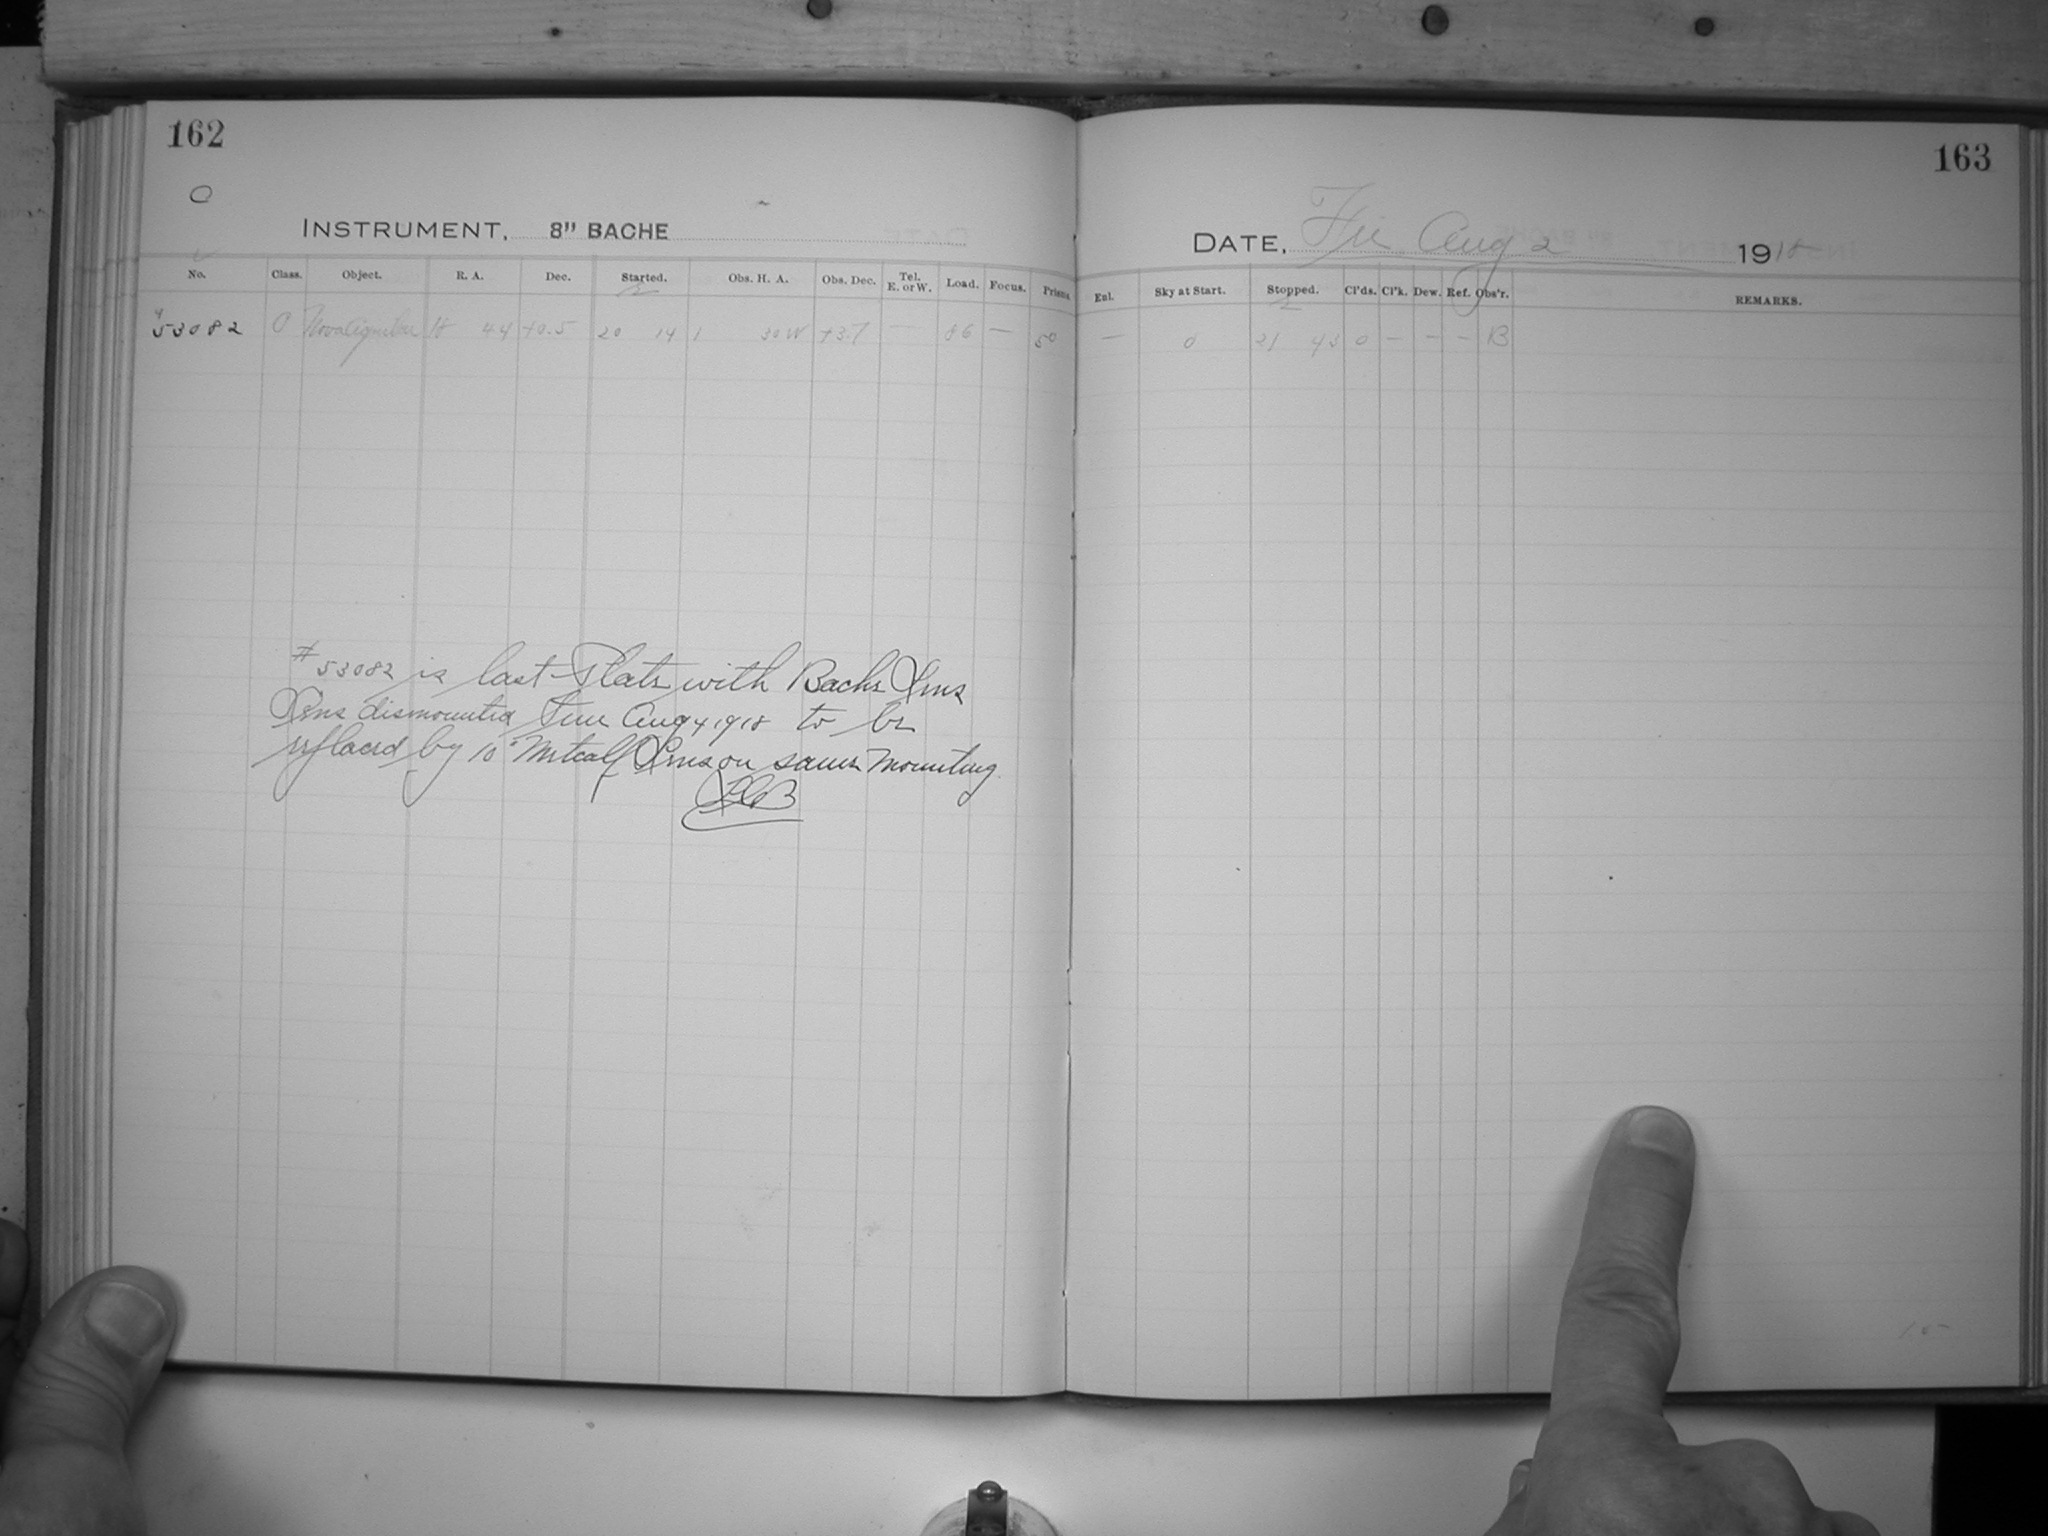 162
163
O
INSTRUMENT, 8" BACHE
DATE, Fri Aug 2 1918
No. Class. Object. R. A. Dec. Started. Obs. H. A. Obs. Dec. Tel. E. or W. Load. Focus. Prisms
Enl. Sky at Start. Stopped. Cl'ds. Cl'k. Dew. Ref. Obs'r. REMARKS.
53082 O Nova Aquilae 18 44 +0.5 20 14 1 30 W +3.7 86 — 50 — 0 21 43 0 – – – B
#53082 is last Plate with Bache Lens
Lens dismounted Aug 4 1918 to be
replaced by 10" Metcalf Lens on same Mounting.